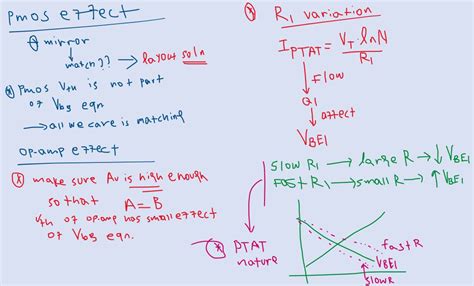 Pmos effect
mirror
match?? → layout soln
Pmos Vth is not part
of Vbg eqn
→ all we care is matching
op-amp effect
make sure Av is high enough
so that A=B
Vth of op-amp has small effect
of Vbg eqn.
R1 variation
IPTAT = VT·lnN
R1
↓ Flow
Q1
↓ affect
VBE1
slow R1 → large R → ↓ VBE1
FAST R1 → small R → ↑ VBE1
PTAT
nature
fast R
VBE1
slow R